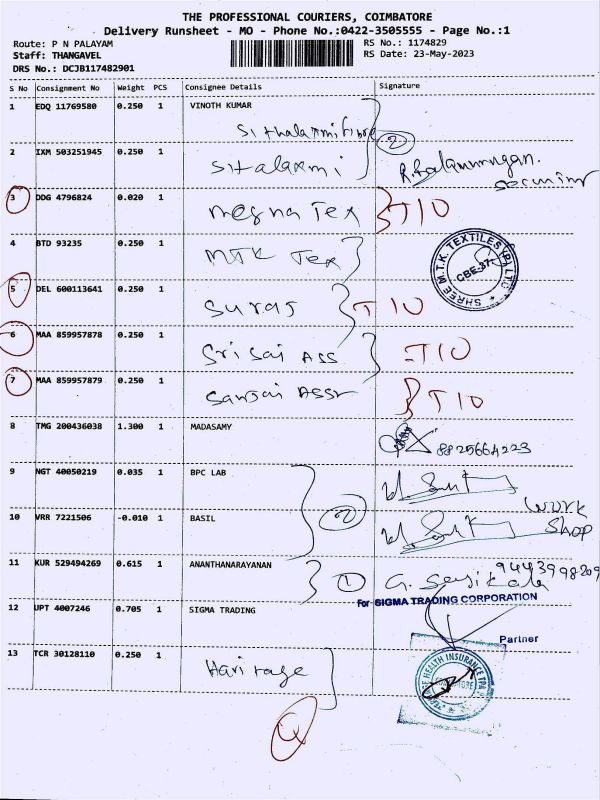 THE PROFESSIONAL COURIERS, COIMBATORE
Delivery Runsheet - MO - Phone No.:0422-3505555 - Page No.:1
Route: P N PALAYAM RS No.: 1174829
Staff: THANGAVEL RS Date: 23-May-2023
DRS No.: DCJB117482901
S No Consignment No Weight PCS Consignee Details Signature
1 EDQ 11769580 0.250 1 VINOTH KUMAR
Sithalaxmi 2
2 IXM 503251945 0.250 1 Sitalaxmi R. Balamurugan.
3 DDG 4796824 0.020 1 Megna Tex TIO
4 BTD 93235 0.250 1 MTK Tex
SHREE M.T.K. TEXTILES (P) LTD
CBE-37
5 DEL 600113641 0.250 1 Suraj TIO
6 MAA 859957878 0.250 1 Sri Sai Ass TIO
7 MAA 859957879 0.250 1 Sanjai Assr TIO
8 TMG 200436038 1.300 1 MADASAMY
8825664223
9 NGT 40050219 0.035 1 BPC LAB
2 work
10 VRR 7221506 -0.010 1 BASIL shop
11 KUR 529494269 0.615 1 ANANTHANARAYANAN 1 G. Sasikala 9443998209
For SIGMA TRADING CORPORATION
12 UPT 4007246 0.705 1 SIGMA TRADING
Partner
13 TCR 30128110 0.250 1 Haritage
HEALTH INSURANCE TPA